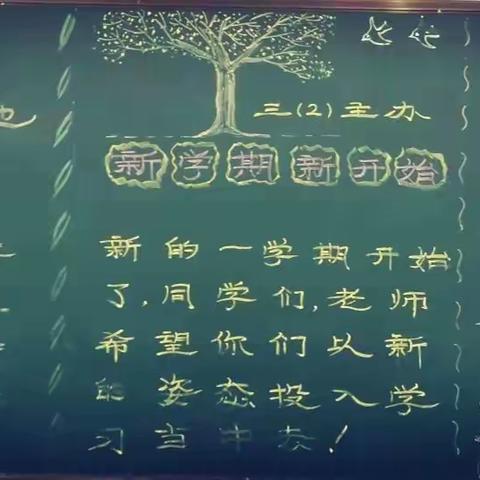 三(2)主办
新学期新开始
新的一学期开始
了,同学们,老师
希望你们以新
的姿态投入学
习当中去!